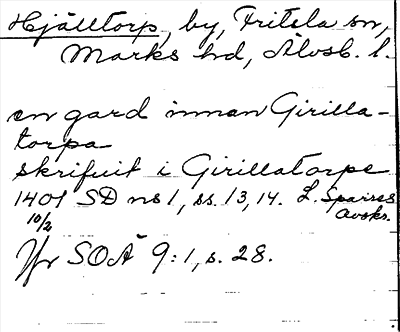 Hjälltorp, by, Fritsla sn,
Marks hd, Älvsb. l.
en gard innan Girilla-
torpa
skrifuit i Girillatorpe
1401 SD ns 1, ss. 13, 14. L. Sparres
10/2 avskr.
Jfr SOÄ 9:1, s. 28.